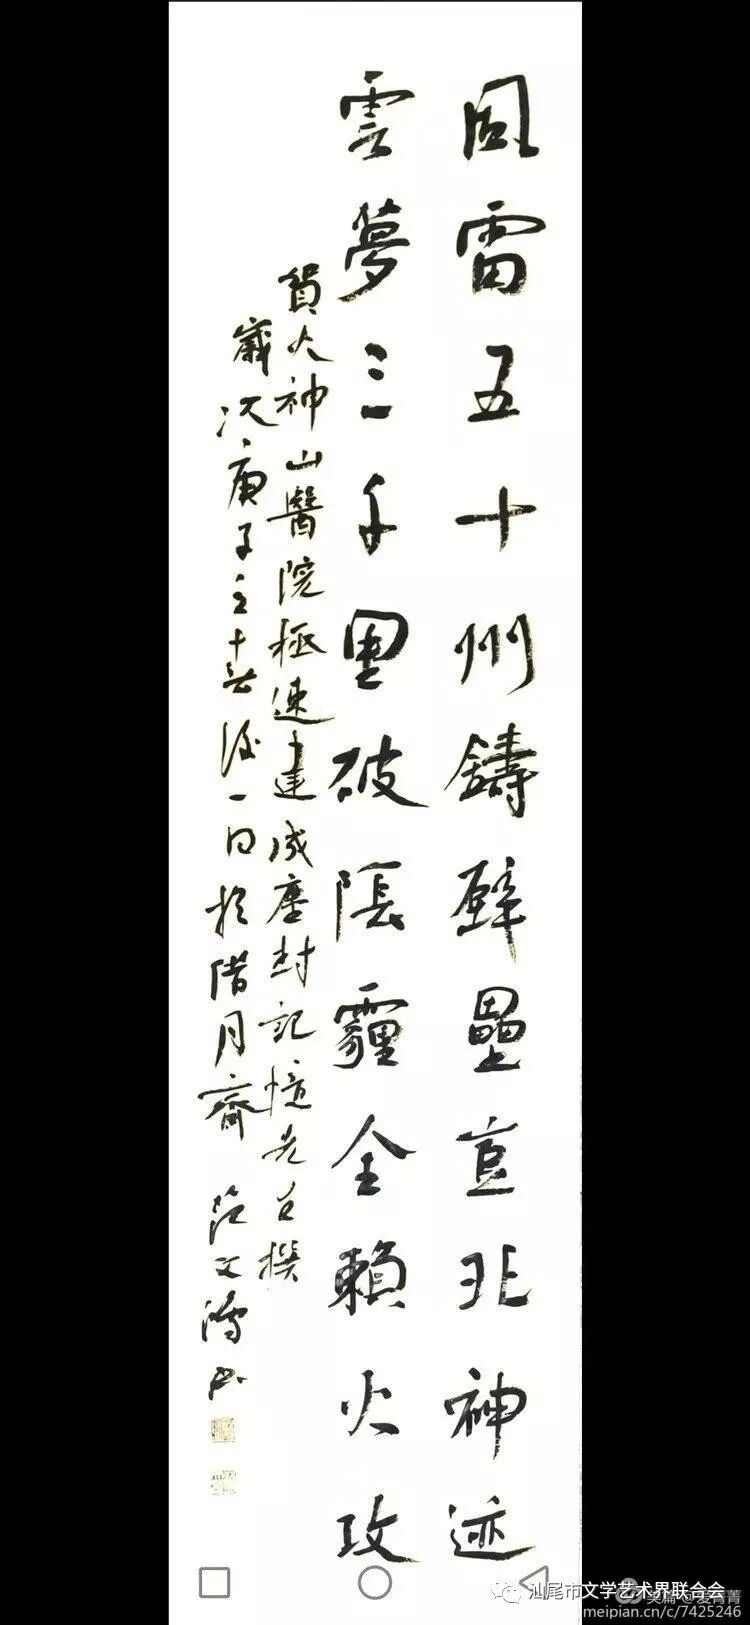 風雷五十州鑄壁壘豈非神迹
雲夢三千里破陰霾全賴火攻
賀火神山醫院極速建成塵封記憶先公撰
歲次庚子立春後一日於借月齋 范文鴻书
汕尾市文学艺术界联合会
美篇@爱菁菁
meipian.cn/c/7425246